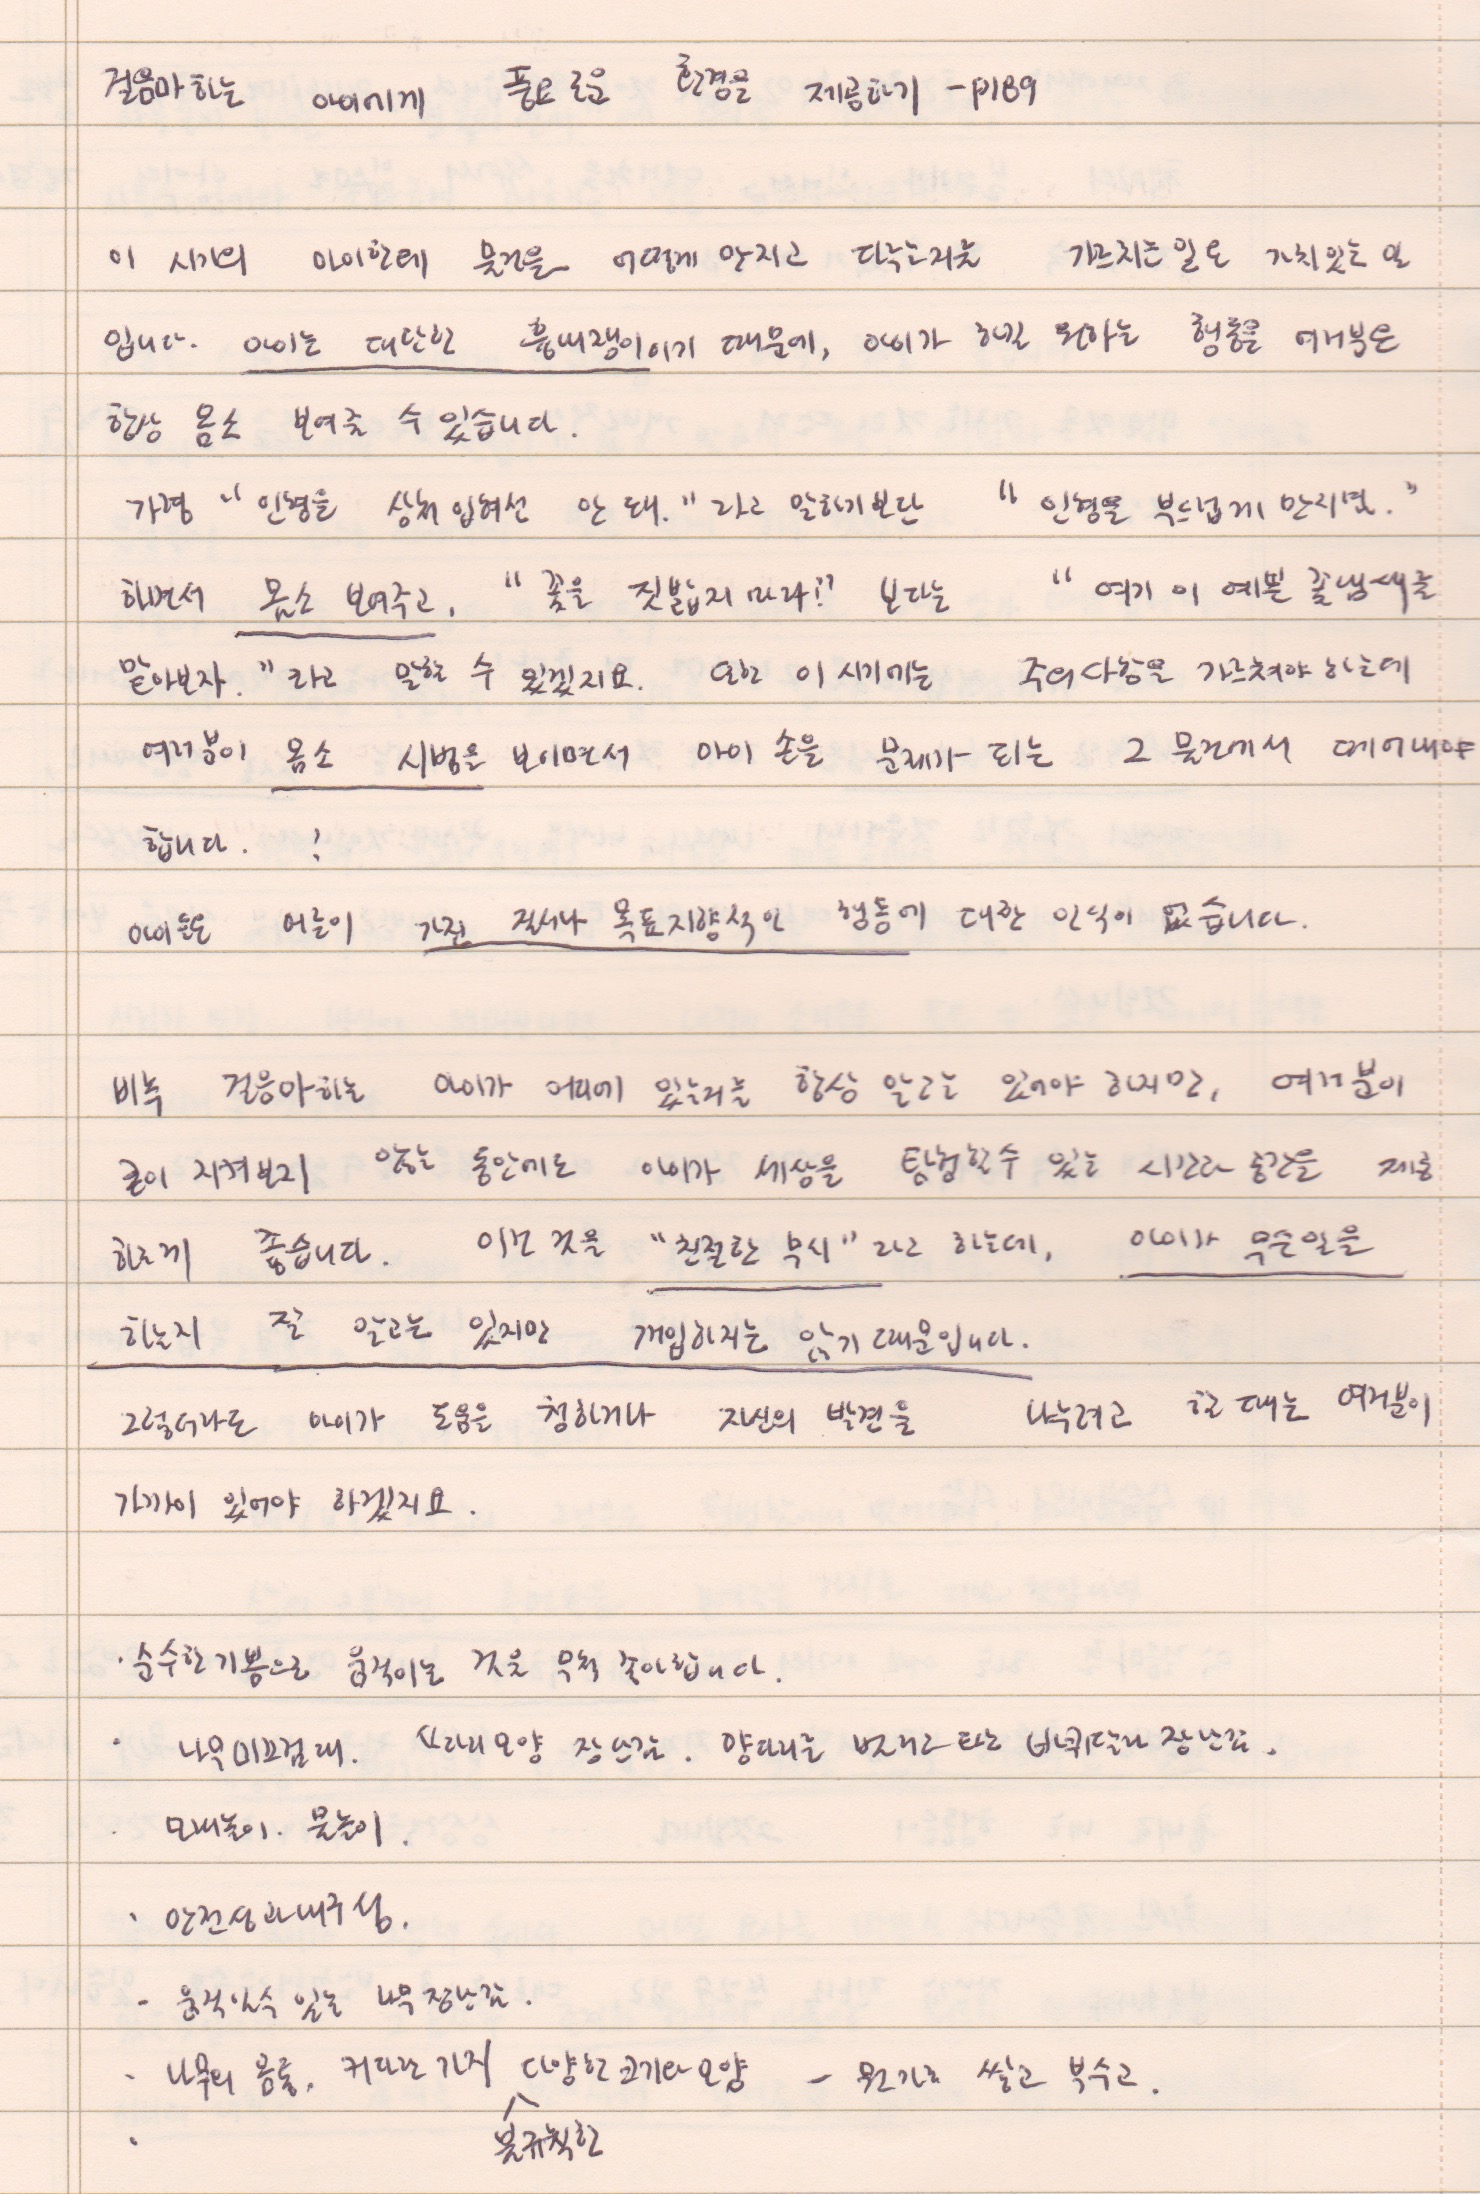 걸음마 하는 아이에게 풍요로운 환경을 제공하기 - p189
이 시기의 아이한테 물건을 어떻게 만지고 다루는지를 가르치는 일도 가치있는 일
입니다. 아이는 대단한 흉내쟁이이기 때문에, 아이가 하길 원하는 행동을 여러분은
항상 몸소 보여줄 수 있습니다.
가령 "인형을 상처 입혀선 안 돼." 라고 말하기보단 "인형을 부드럽게 만지렴."
하면서 몸소 보여주고, "꽃을 짓밟지 마라!" 보다는 "여기 이 예쁜 꽃냄새를
맡아보자." 라고 말할 수 있겠지요. 또한 이 시기에는 주의사항을 가르쳐야 하는데
여러분이 몸소 시범을 보이면서 아이 손을 문제가 되는 그 물건에서 떼어내야
합니다. !
아이들은 어른이 가진 질서나 목표지향적인 행동에 대한 인식이 없습니다.
비록 걸음마하는 아이가 어디에 있는지를 항상 알고는 있어야 하지만, 여러분이
굳이 지켜보지 않는 동안에도 아이가 세상을 탐험할 수 있는 시간과 공간을 제공
하는게 좋습니다. 이런 것을 "친절한 무시" 라고 하는데, 아이가 무슨일을
하는지 잘 알고는 있지만 개입하지는 않기 때문입니다.
그렇더라도 아이가 도움을 청하거나 자신의 발견을 나누려고 할 때는 여러분이
가까이 있어야 하겠지요.
· 순수한 기쁨으로 움직이는 것을 무척 좋아합니다.
· 나무미끄럼대. 장난감. 양다리를 벌리고 타는 바퀴달린 장난감.
· 모래놀이. 물놀이.
· 안전성과 내구성.
- 움직일수 있는 나무 장난감.
· 나무의 몸통, 커다란 가지 다양한 크기와 모양 - 뭔가를 쌓고 부수고.
· 불규칙한